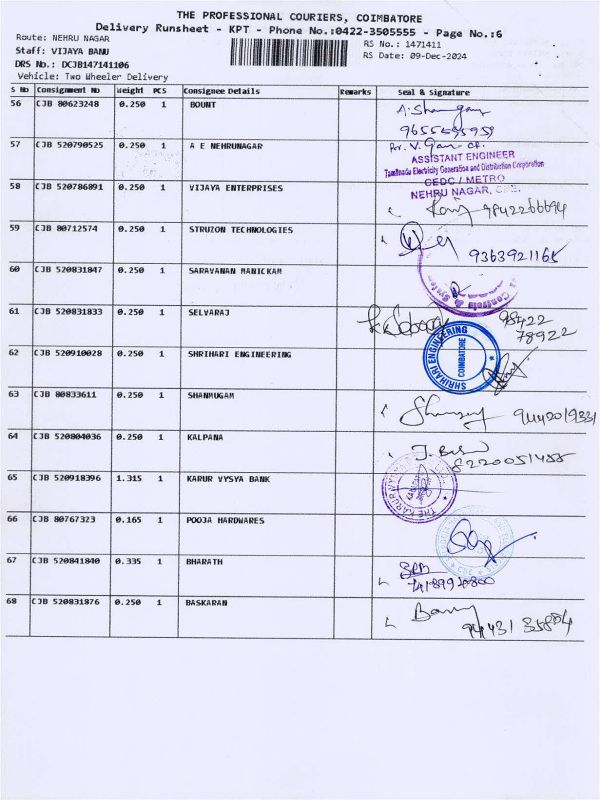 THE PROFESSIONAL COURIERS, COIMBATORE
Delivery Runsheet - KPT - Phone No.:0422-3505555 - Page No.:6
Route: NEHRU NAGAR
RS No.: 1471411
Staff: VIJAYA BANU
RS Date: 09-Dec-2024
DRS No: DCJB147141106
Vehicle: Two Wheeler Delivery
S No Consignment No Weight PCS Consignee Details Remarks Seal & Signature
56 CJB 80623248 0.250 1 BOUNT
57 CJB 520790525 0.250 1 A E NEHRUNAGAR
ASSISTANT ENGINEER
Tamilnadu Electricity Generation and Distribution Corporation
CEDC / METRO
NEHRU NAGAR, CBE.
58 CJB 520786891 0.250 1 VIJAYA ENTERPRISES
59 CJB 80712574 0.250 1 STRUZON TECHNOLOGIES
9363921165
60 CJB 520831847 0.250 1 SARAVANAN MANICKAM
61 CJB 520831833 0.250 1 SELVARAJ
98422
78922
62 CJB 520910028 0.250 1 SHRIHARI ENGINEERING
SHRIHARI ENGINEERING
COIMBATORE
63 CJB 80833611 0.250 1 SHANMUGAM
64 CJB 520804036 0.250 1 KALPANA
8220051488
65 CJB 520918396 1.315 1 KARUR VYSYA BANK
THE KARUR VYSYA
66 CJB 80767323 0.165 1 POOJA HARDWARES
67 CJB 520841840 0.335 1 BHARATH
68 CJB 520831876 0.250 1 BASKARAN